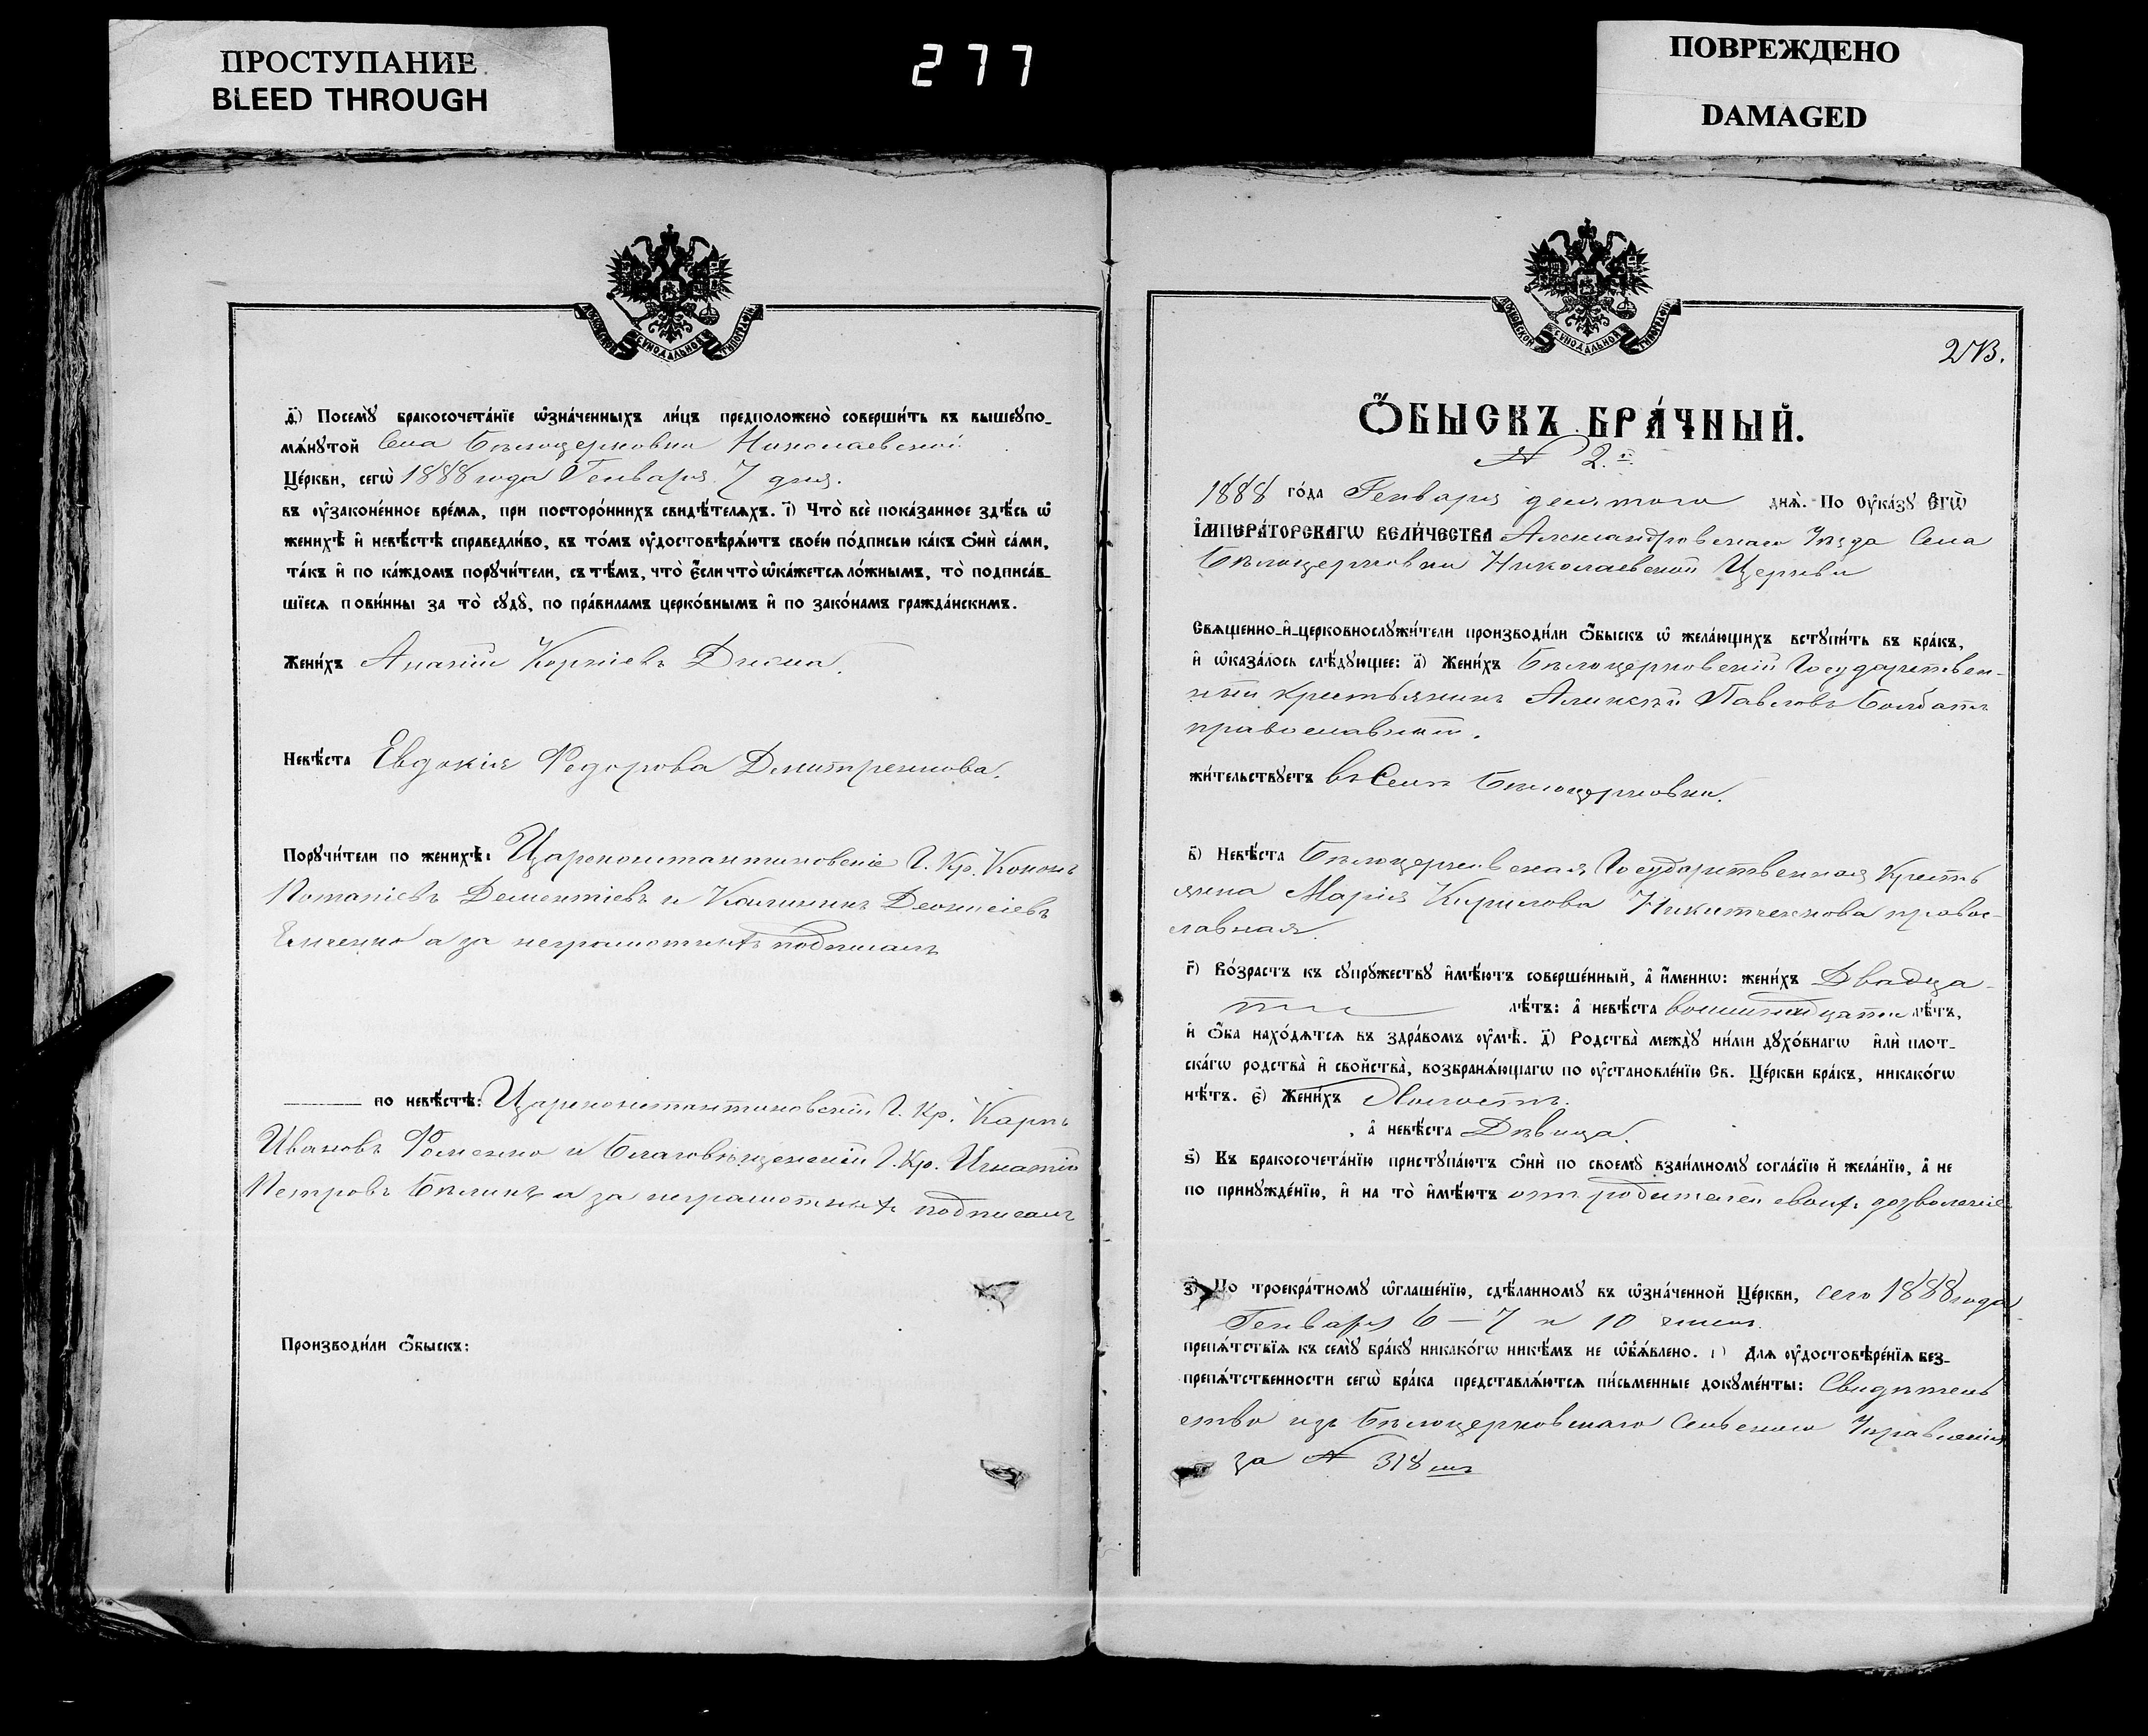 ПРОСТУПАНИЕ
BLEED THROUGH
277
ПОВРЕЖДЕНО
DAMAGED
МОСКОВСКОЙ СѴНОДАЛЬНОЙ ТИПОГРАФІИ
Посемꙋ̀ бракосочета́нїе ѡ҆зна́ченныхъ ли́цъ предположено̀ соверши́ть въ вышеꙋпо-
мѧ́нꙋтой Села Бѣлоцерковки Николаевской
Це́ркви, сегѡ̀ 1888 года Генваря 7 дня.
въ ᲂу҆законе́нное вре́мѧ, при посторо́ннихъ свидѣ́телѧхъ. і҃) Что̀ всѐ пока́занное здѣ́сь ѡ҆
женихѣ̀ и҆ невѣ́стѣ справедли́во, въ то́мъ ᲂу҆достовѣрѧ́ютъ свое́ю по́дписью ка́къ ѻ҆нѝ са́ми,
та́къ и҆ по ка́ждомъ порꙋчи́тели, съ тѣ́мъ, что̀ є҆́сли что̀ ѡ҆ка́жетсѧ ло́жнымъ, то̀ подписа́в-
шїесѧ пови́нны за то̀ сꙋдꙋ̀, по пра́виламъ церко́внымъ и҆ по зако́намъ гражда́нскимъ.
Жени́хъ Ананій Корніевъ
Невѣ́ста Евдокія Федорова Дмитренкова.
Порꙋчи́тели по женихѣ̀: Цареконстантиновскіе Г. Кр. Кононъ
Потапіевъ Дементіевъ и Калиникъ Деонисіевъ
а за неграмотныхъ подписалъ
по невѣ́стѣ: Цареконстантиновскій Г. Кр. Карпъ
Ивановъ Фоменко и Благовѣщенскій Г. Кр. Игнатій
Петровъ Бѣликъ а за неграмотныхъ подписалъ
Производи́ли ѻ҆́быскъ:
МОСКОВСКОЙ СѴНОДАЛЬНОЙ ТИПОГРАФІИ
Ѻ҆́БЫСКЪ БРА́ЧНЫЙ.
№ 2.й
1888 го́да Генваря девятого днѧ̀. По ᲂу҆ка́зꙋ Є҆гѡ̀
І҆МПЕРА́ТОРСКАГѠ ВЕЛИ́ЧЕСТВА Александровскаго Уѣзда Села
Бѣлоцерковки Николаевской Церкви
Свѧщенно-и҆-церковнослꙋжи́тели производи́ли ѻ҆́быскъ ѡ҆ жела́ющихъ встꙋпи́ть въ бра́къ,
и҆ ѡ҆каза́лось слѣ́дꙋющее: а҃) Жени́хъ Бѣлоцерковскій Государствен-
ный крестьянинъ Алексѣй Павловъ Болбатъ
православный.
жи́тельствꙋетъ въ Селѣ Бѣлоцерковки.
в҃) Невѣ́ста Бѣлоцерковская Государственная Кресть
янка Марія Кирилова Никитченкова правос-
лавная.
г҃) Во́зрастъ къ сꙋпрꙋ́жествꙋ и҆мѣ́ютъ соверше́нный, а҆ и҆́меннѡ: жени́хъ Двадца-
ти лѣ́тъ: а҆ невѣ́ста восимнадцати лѣ́тъ,
и҆ ѻ҆́ба нахо́дѧтсѧ въ здра́вомъ ᲂу҆мѣ̀. д҃) Родства̀ междꙋ̀ ни́ми дꙋхо́внагѡ и҆лѝ плот-
ска́гѡ родства̀ и҆ свойства̀, возбранѧ́ющагѡ по ᲂу҆становле́нїю Св. Це́ркви бра́къ, никако́гѡ
нѣ́тъ. є҃) Жени́хъ Холостъ.
, а҆ невѣ́ста Дѣвица.
ѕ҃) Къ бракосочета́нїю пристꙋпа́ютъ ѻ҆нѝ по своемꙋ̀ взаи́мномꙋ согла́сїю и҆ жела́нїю, а҆ не
по принꙋжде́нїю, и҆ на то̀ и҆мѣ́ютъ отъ родителей своихъ дозволеніе
з҃) По троекра́тномꙋ ѡ҆глаше́нїю, сдѣ́ланномꙋ въ ѡ҆зна́ченной Це́ркви, сего 1888 года
Генваря 6 – 7 и 10 чиселъ
препѧ́тствїѧ къ семꙋ̀ бра́кꙋ никако́гѡ никѣ́мъ не ѡ҆б̾ѧ́влено. и҃) Длѧ ᲂу҆достовѣре́нїѧ без-
препѧ́тственности сегѡ̀ бра́ка представлѧ́ютсѧ пи́сьменные докꙋме́нты: Свидѣтель
ство изъ Бѣлоцерковскаго Сельского Управленія
за № 318 мъ